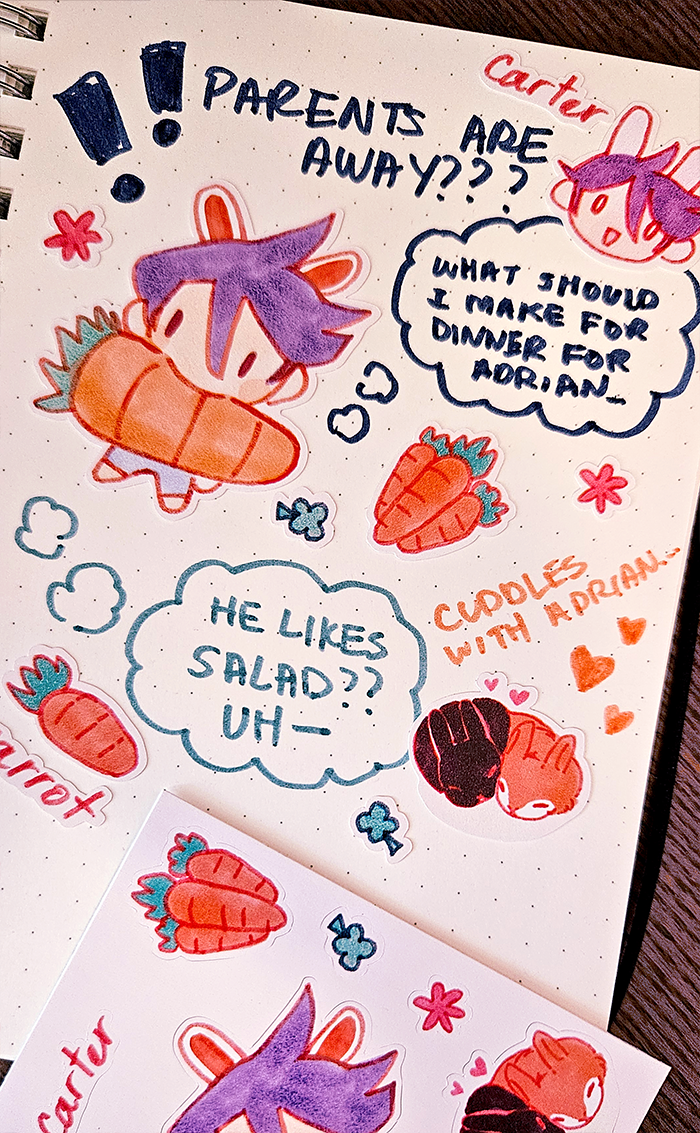 PARENTS ARE
AWAY???
Carter
WHAT SHOULD
I MAKE FOR
DINNER FOR
ADRIAN...
CUDDLES
WITH ADRIAN...
HE LIKES
SALAD??
UH—
arrot
Carter